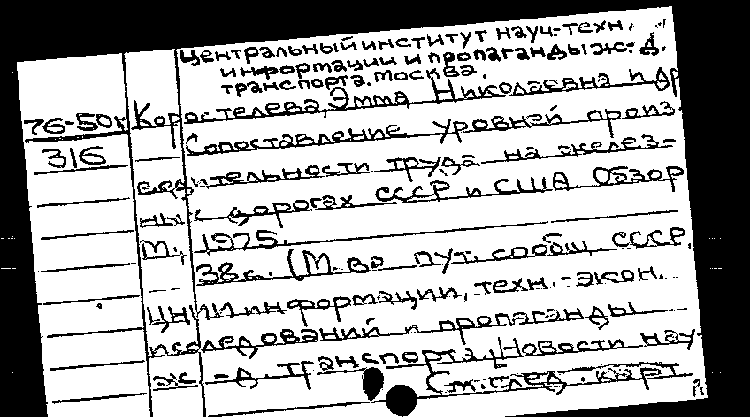 Центральный институт науч.-техн.
информации и пропаганды ж.-д.
транспорта. Москва.
76-50к Коростелева, Эмма Николаевна и др
316 Сопоставление уровней произ-
водительности труда на желез-
ных дорогах СССР и США Обзор
М., 1975.
38с. (М-во пут. сообщ. СССР.
ЦНИИ информации, техн.-экон.
исследований и пропаганды
ж.-д. транспорта. Новости нау-
См. след. карт